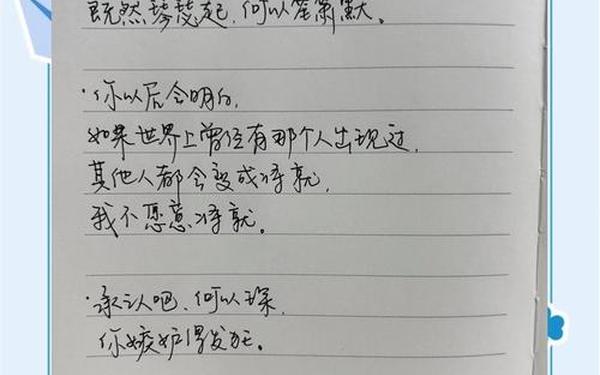 既然琴瑟起,何以笙箫默。
·你以后会明白,
如果世界上曾经有那个人出现过,
其他人都会变成将就,
我不愿意将就。
·承认吧,何以琛,
你嫉妒得发狂。